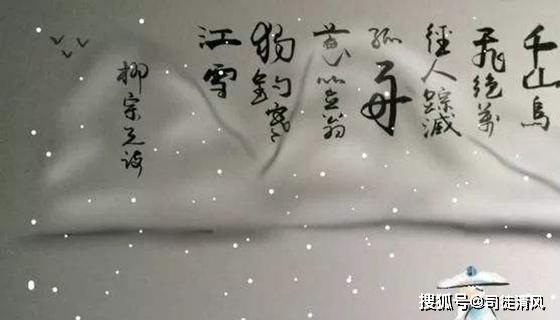 千山鳥
飛绝萬
径人踪滅
孤舟
蓑笠翁
独钓寒
江雪
柳宗元诗
搜狐号@司徒清风